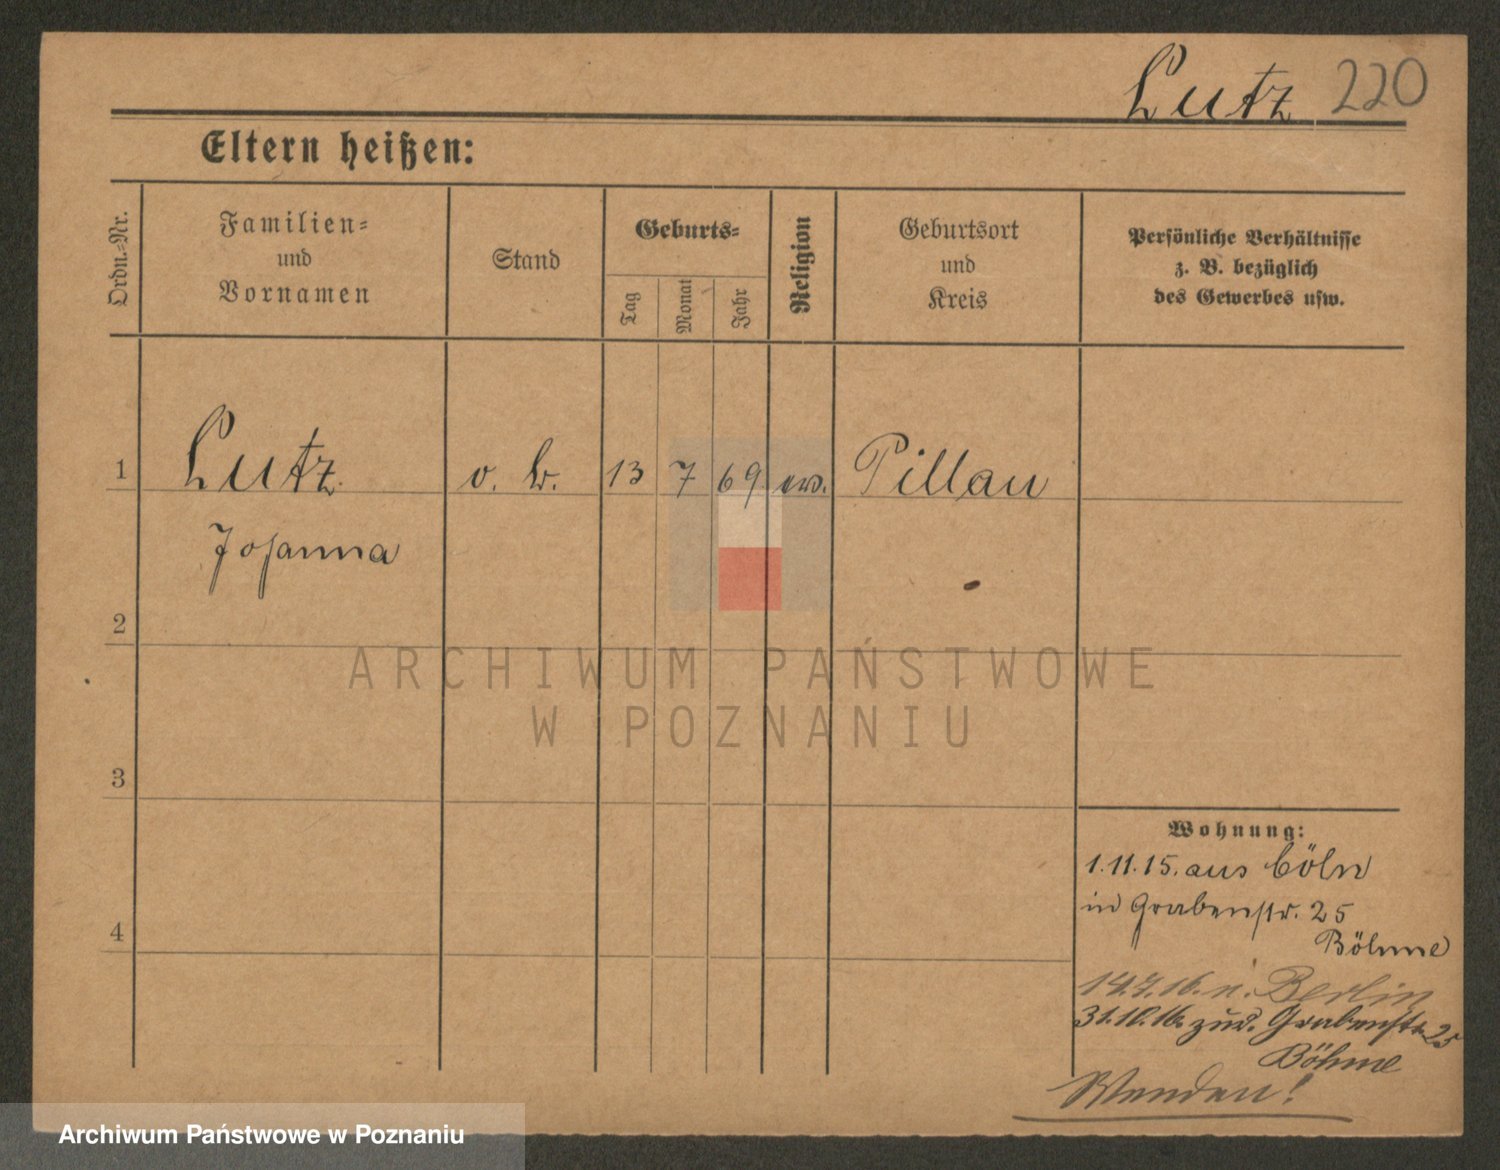 Lutz 220
Eltern heißen:
Ordn.-Nr.
Familien-
und
Vornamen
Stand
Geburts-
Tag
Monat
Jahr
Religion
Geburtsort
und
Kreis
Persönliche Verhältnisse
z. B. bezüglich
des Gewerbes usw.
1 Lutz o. b. 13 7 69 ev. Pillau
Johanna
2
ARCHIWUM PAŃSTWOWE
W POZNANIU
3
Wohnung:
1.11.15. aus Cöln
in Grabenstr. 25
Böhme
4
14.7.16. n. Berlin
31.10.16. zur. Grabenstr 25
Böhme
Wenden!
Archiwum Państwowe w Poznaniu